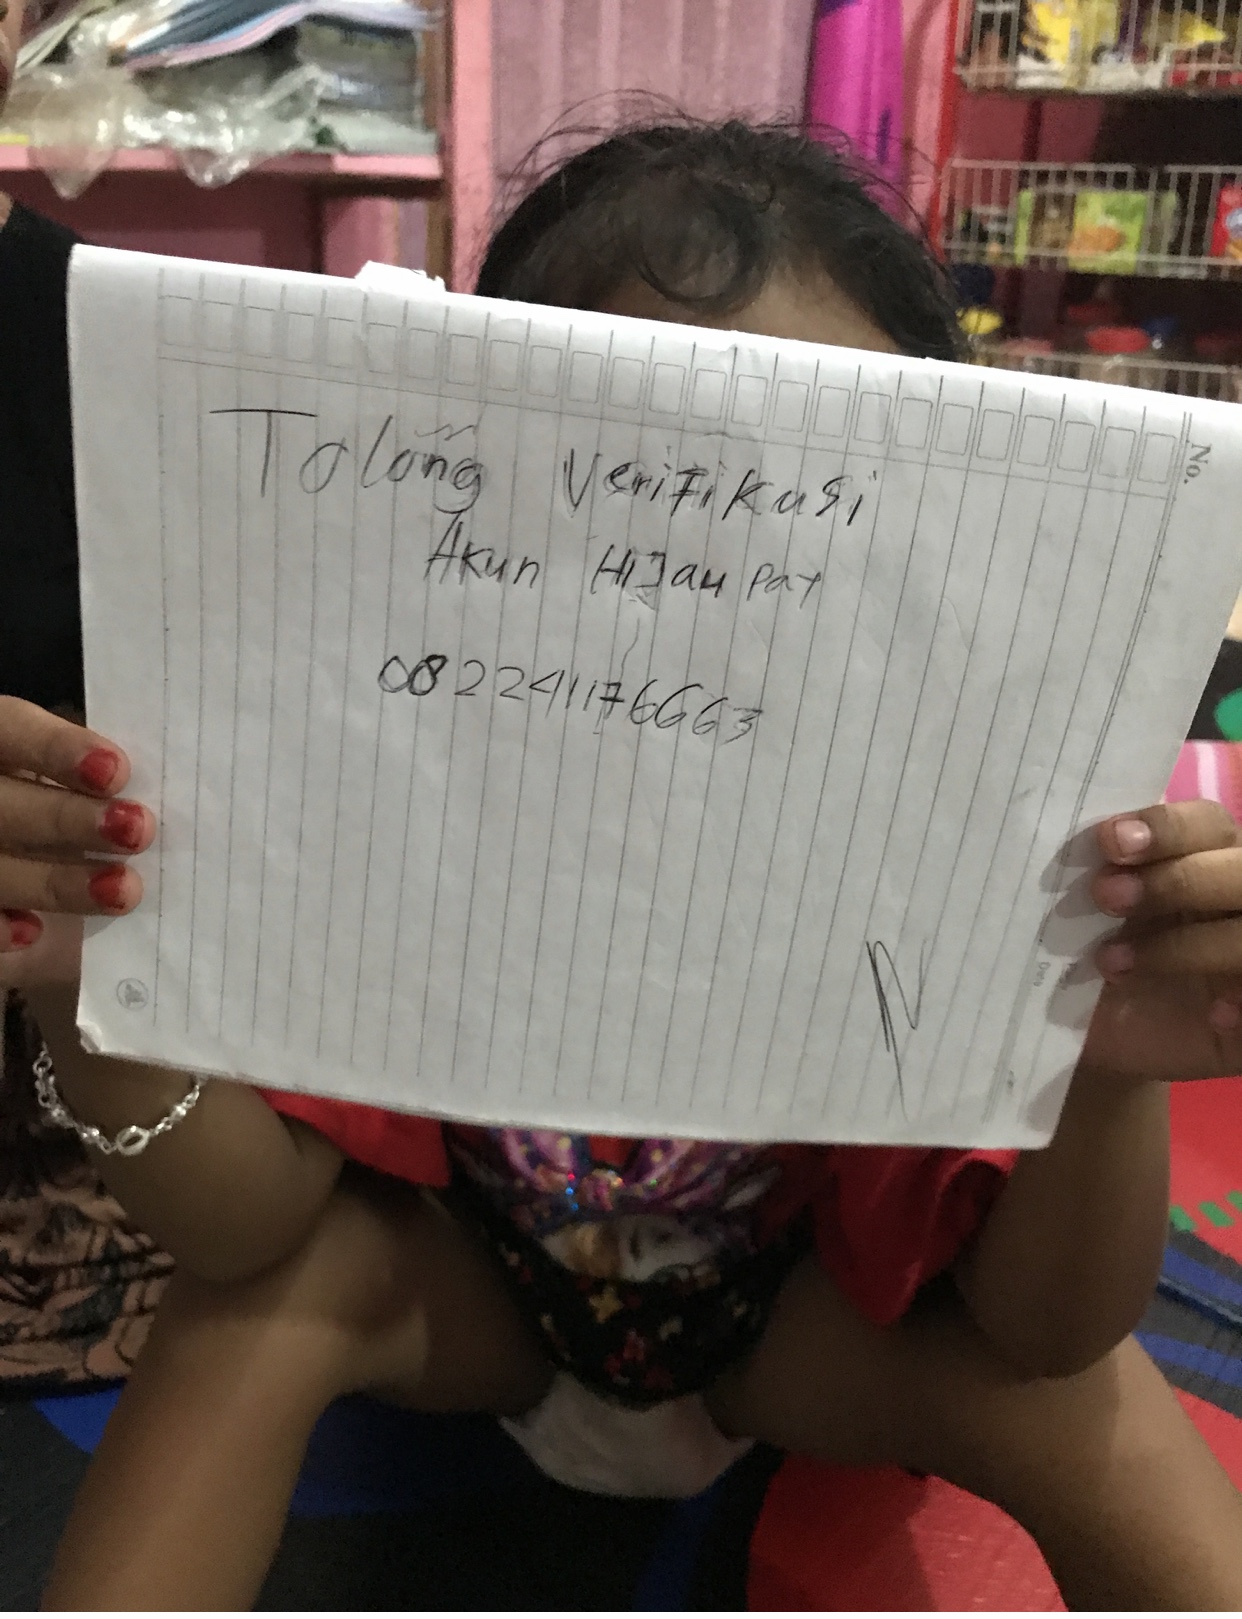 Tolong Verifikasi
Akun HiJau Pay
082241176663
No.
Date